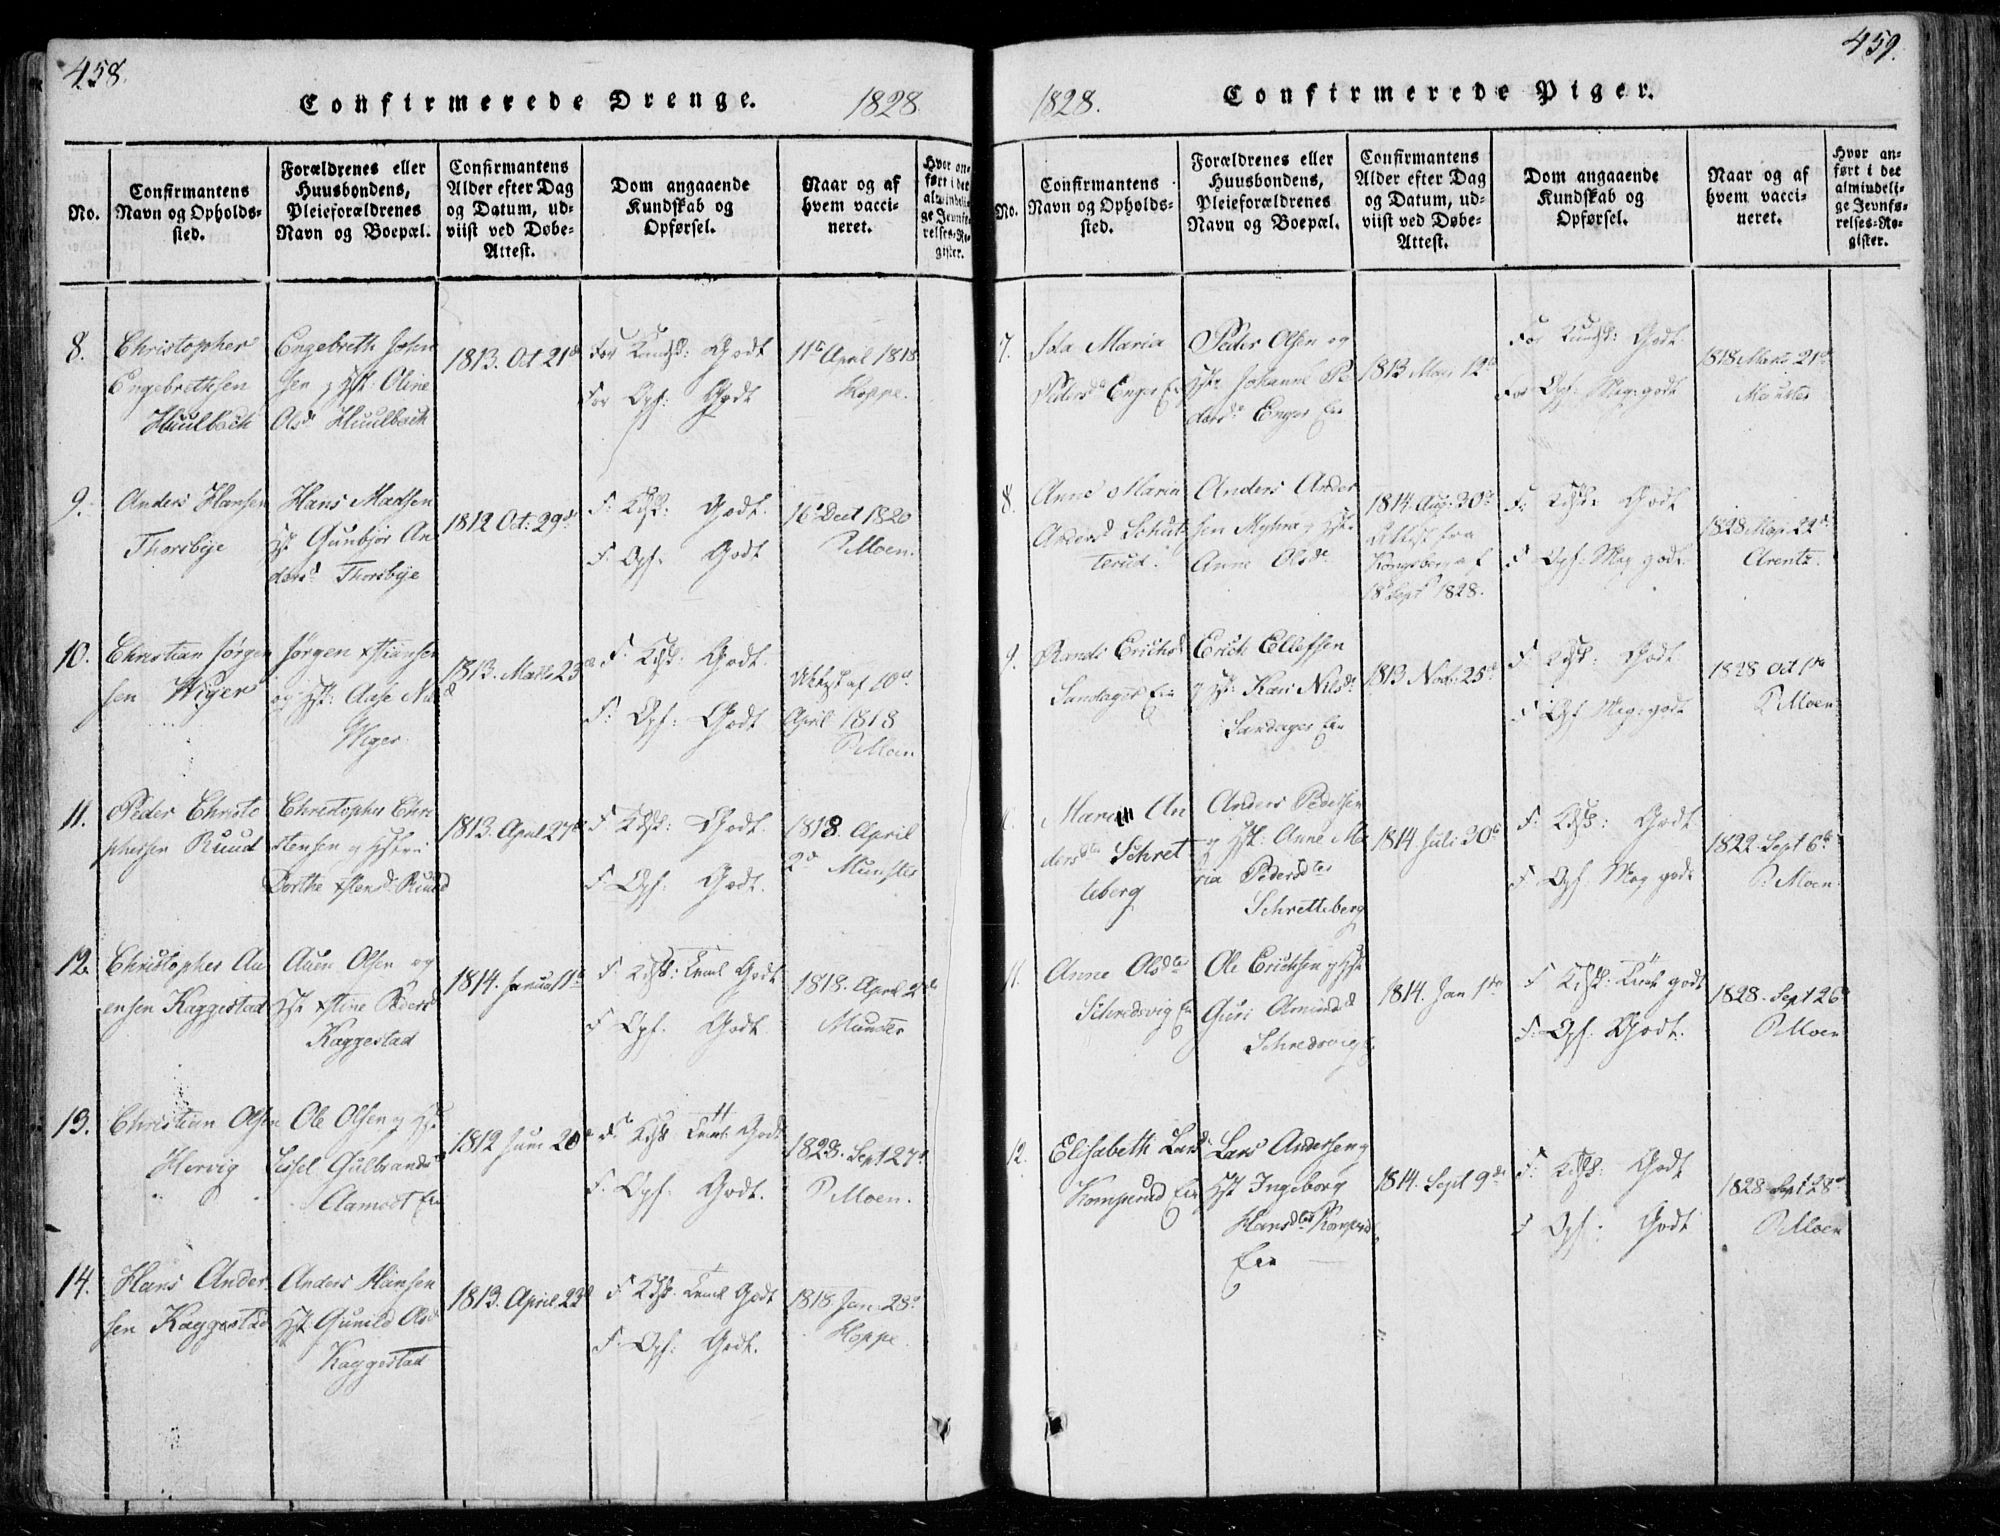 458.
Confirmerede Drenge.
1828
No.
Confirmantens Navn og Opholds-sted.
Forældrenes eller Huusbondens, Pleieforældrenes Navn og Boepæl.
Confirmantens Alder efter Dag og Datum, ud-viist ved Døbe-Attest.
Dom angaaende Kundskab og Opførsel.
Naar og af hvem vacci-neret.
Hvor an-ført i det almindeli-ge Jevnfø-relses-Re-gister.
8.
Christopher
Engebrethsen
Huulbach
Engebreth John
sen
Oline
Olsd Huulbach
1813. Oct 21de
For Kundsk: Godt
For Opf: Godt
11te April 1818
Hoppe.
9.
Anders Hansen
Thorsbye
Hans Madsen
Gunbjør An
dersd Thorsbye
1812 Oct: 29de
F: Kdsk: Godt.
F: Opf: Godt
16de Dect 1820
P. Moen.
10.
Christian Jørgen
sen Wiger
Jørgen Xstiansen
og
Wiger
1813. Marts 23
F: Kdsk: Godt.
F: Opf: Godt
Attest af 10de
April 1818
P Moen
11.
Peder Christo
phersen Ruud
Christopher Chri
stensen
Dorthe Xstensd Ruud
1813. April 27de
F: Kdsk: Godt.
F: Opf: Godt.
1818. April
2de Munster
12.
Christopher Au
ensen Kaggestad
Auen Olsen og
Xstine Pedersd
Kaggestad
1814. Januar
F: Kdsk: Teml Godt
F: Opf. Godt.
1818. April 2de
Munster
13.
Christian Olsen
Hervig
Ole Olsen
Sissel Gulbrandsd
Aamodt Eie
1812 Juni 20de
F: Kdsk: Teml: Godt
F: Opf: Godt.
1828. Sept 27de
P Moen.
14.
Hans Ander
sen Kaggestad
Anders Hansen
Gunild Olsd
Kaggestad
1813. April 23d
F: Kdsk. Teml Godt
F. Opf: Godt.
1818 Jan. 28de
Hoppe
459.
1828.
Confirmerede Piger.
No.
Confirmantens Navn og Opholds-sted.
Forældrenes eller Huusbondens, Pleieforældrenes Navn og Boepæl.
Confirmantens Alder efter Dag og Datum, ud-viist ved Døbe-Attest.
Dom angaaende Kundskab og Opførsel.
Naar og af hvem vacci-neret.
Hvor an-ført i det almindeli-ge Jevnfø-relses-Re-gister.
7.
Ida Maria
Pedersd Enger Eie
Peder Olsen og
Johanne Pe
dersd Enger Eie
1813 Mai 12te
For Kundsk: Godt
For Opf: Meg: godt
1818 Marts 21de
Munster
8.
Anne Maria
Andersd Schut
terud.
Anders Ander
sen Myhre
Anne Olsd
1814 Aug. 30de
Attest fra
Kongsberg af
18 Sept 1828.
F: Kdsk: Godt
F Opf: Meg godt.
1828 22de
Arentz.
9.
Randi Erichsd
Sandager Eie
Erich Ellefsen
Kari Nilsd
Sandager Eie
1813 Novb: 25de
F: Kdsk: Godt
F Opf Meg: godt
1828 Oct 1te
P Moen
Maria An
dersdtr Schret
teberg
Anders Pedersen
Anne Ma
ria Pedersdter
Schretteberg
1814. Juli 30te
F: Kdsk: Godt
F Opf: Meg godt
1822. Sept 6te
P. Moen
11.
Anne Olsdtr
Schredsvig Eie
Ole Erichsen
Guri Amundsd
Schredsvig E.
1814. Jan 1te
F Kdsk: Teml godt
F: Opf: Godt.
1828. Sept 26de
P. Moen
12.
Elisabeth Larsd
Komperud Eie
Lars Andersen
Ingeborg
Hansdtr Komperud
Eie
1814. Sept 9de
F: Kdsk: Godt
F Opf: Godt
1828 Sept 28de
P. Moen